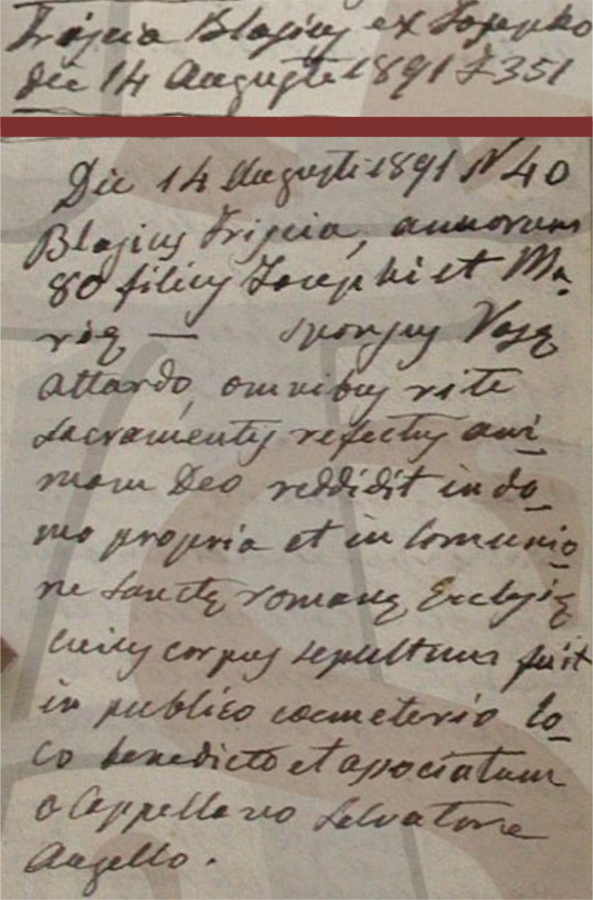 Friscia Blasius ex Josepho
die 14 Augusti 1891 F 351
Die 14 Augusti 1891 N 40
Blasius Friscia, annorum
80 filius Josephi et Ma_
rię — sponsus Rosę
Attardo, omnibus rite
sacramentis refectus ani_
mam Deo reddidit in do_
mo propria et in comunio_
ne Sanctę romanę Ecclesię
cuius corpus sepultum fuit
in publico cœmeterio lo_
co benedicto et associatum
a Cappellano Salvatore
Augello.